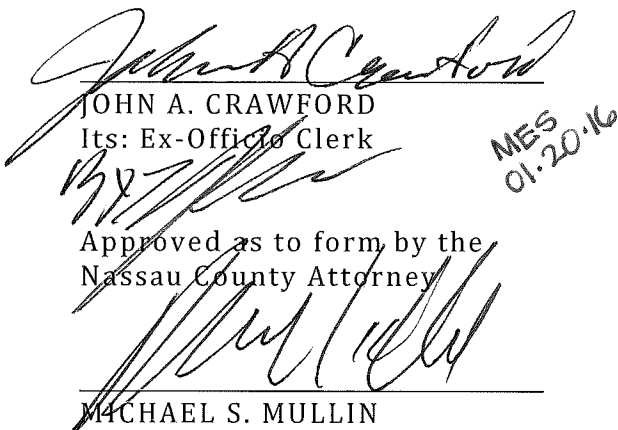 John A Crawford
JOHN A. CRAWFORD
Its: Ex-Officio Clerk
MES
01.20.16
Approved as to form by the
Nassau County Attorney
MICHAEL S. MULLIN